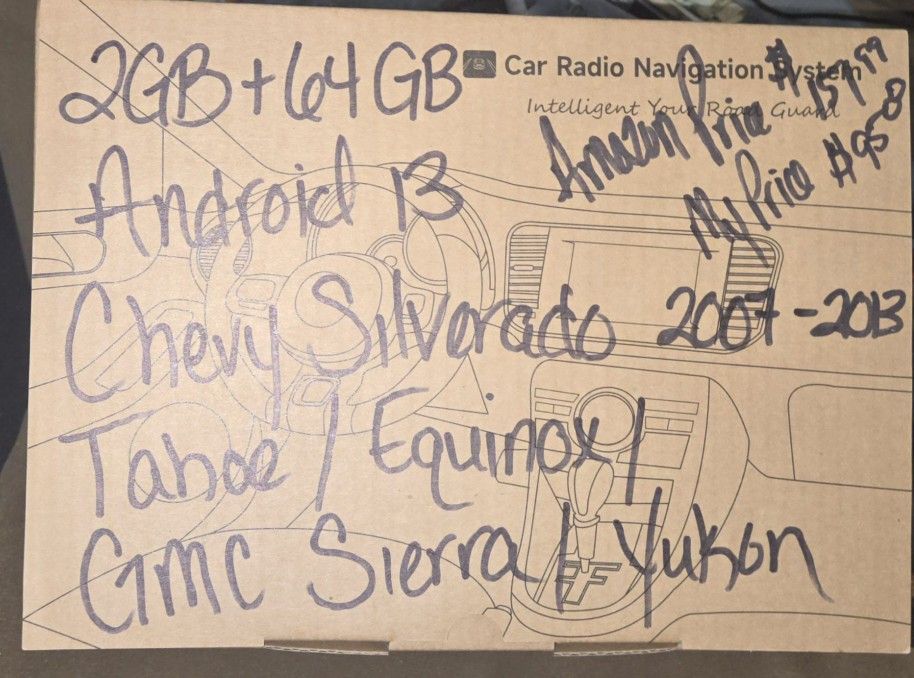 2GB+64GB
Car Radio Navigation System
Intelligent Your Road Guard
Amazon Price $159.99
My Price $95
Android 13
Chevy Silverado 2007-2013
Tahoe / Equinox /
GMC Sierra / Yukon